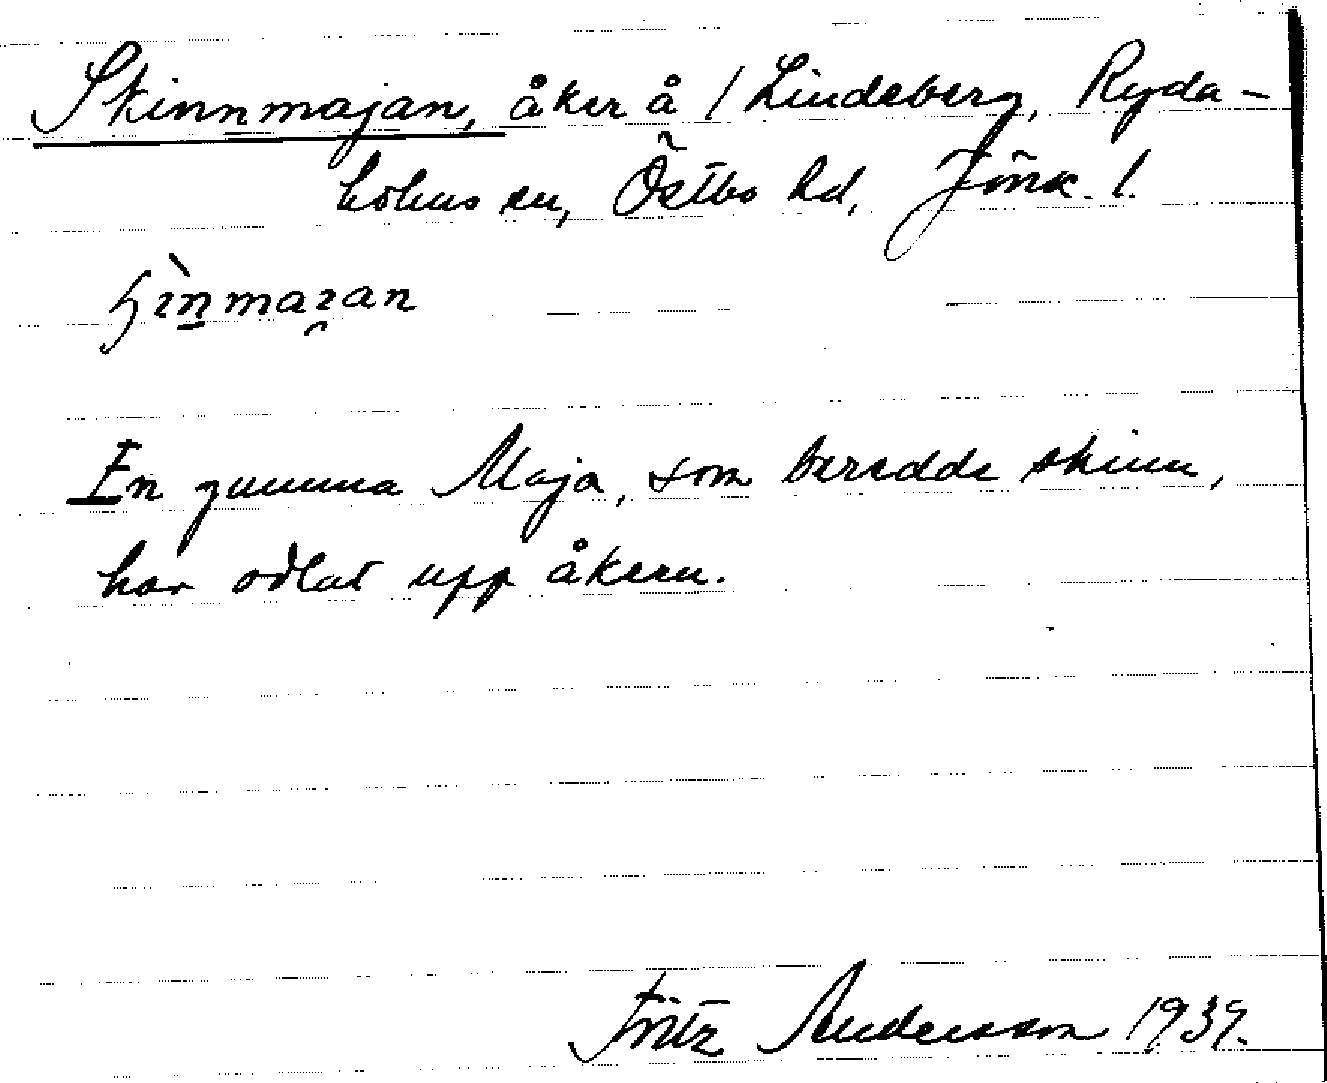 Skinnmajan, åker å / Lindeberg, Ryda-
holms sn, Östbo hd, Jönk. l.
En gumma Maja, som beredde skinn,
har odlat upp åkern.
Fritz Andersson 1939.